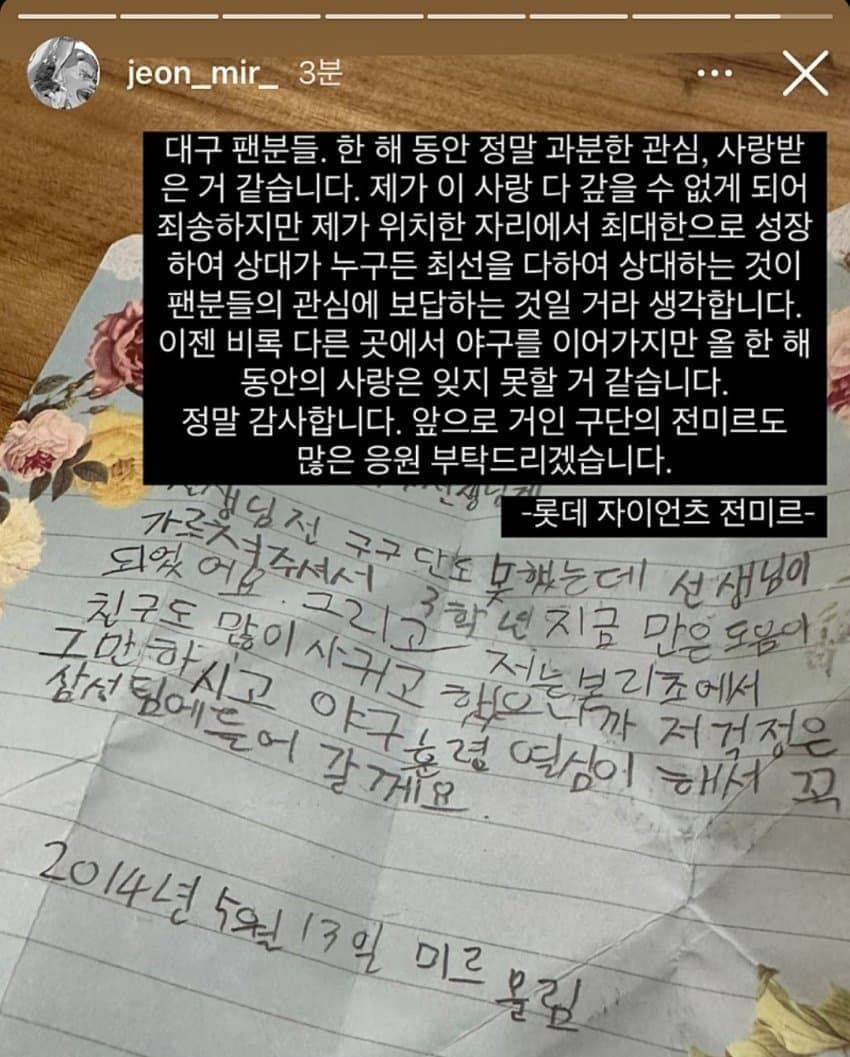 jeon_mir_ 3분
대구 팬분들. 한 해 동안 정말 과분한 관심, 사랑받
은 거 같습니다. 제가 이 사랑 다 갚을 수 없게 되어
죄송하지만 제가 위치한 자리에서 최대한으로 성장
하여 상대가 누구든 최선을 다하여 상대하는 것이
팬분들의 관심에 보답하는 것일 거라 생각합니다.
이젠 비록 다른 곳에서 야구를 이어가지만 올 한 해
동안의 사랑은 잊지 못할 거 같습니다.
정말 감사합니다. 앞으로 거인 구단의 전미르도
많은 응원 부탁드리겠습니다.
-롯데 자이언츠 전미르-
선생님전 구구단도 못했는데 선생님이
가르쳐주셔서 3학년 지금 만은 도움이
되었어요. 그리고 저는 본리초에서
친구도 많이 사귀고 했으니까 저 걱정은
그만하시고 야구 훈령 열심이 해서 꼭
삼성팀에들어 갈께요.
2014년 5월 13일 미르 올림